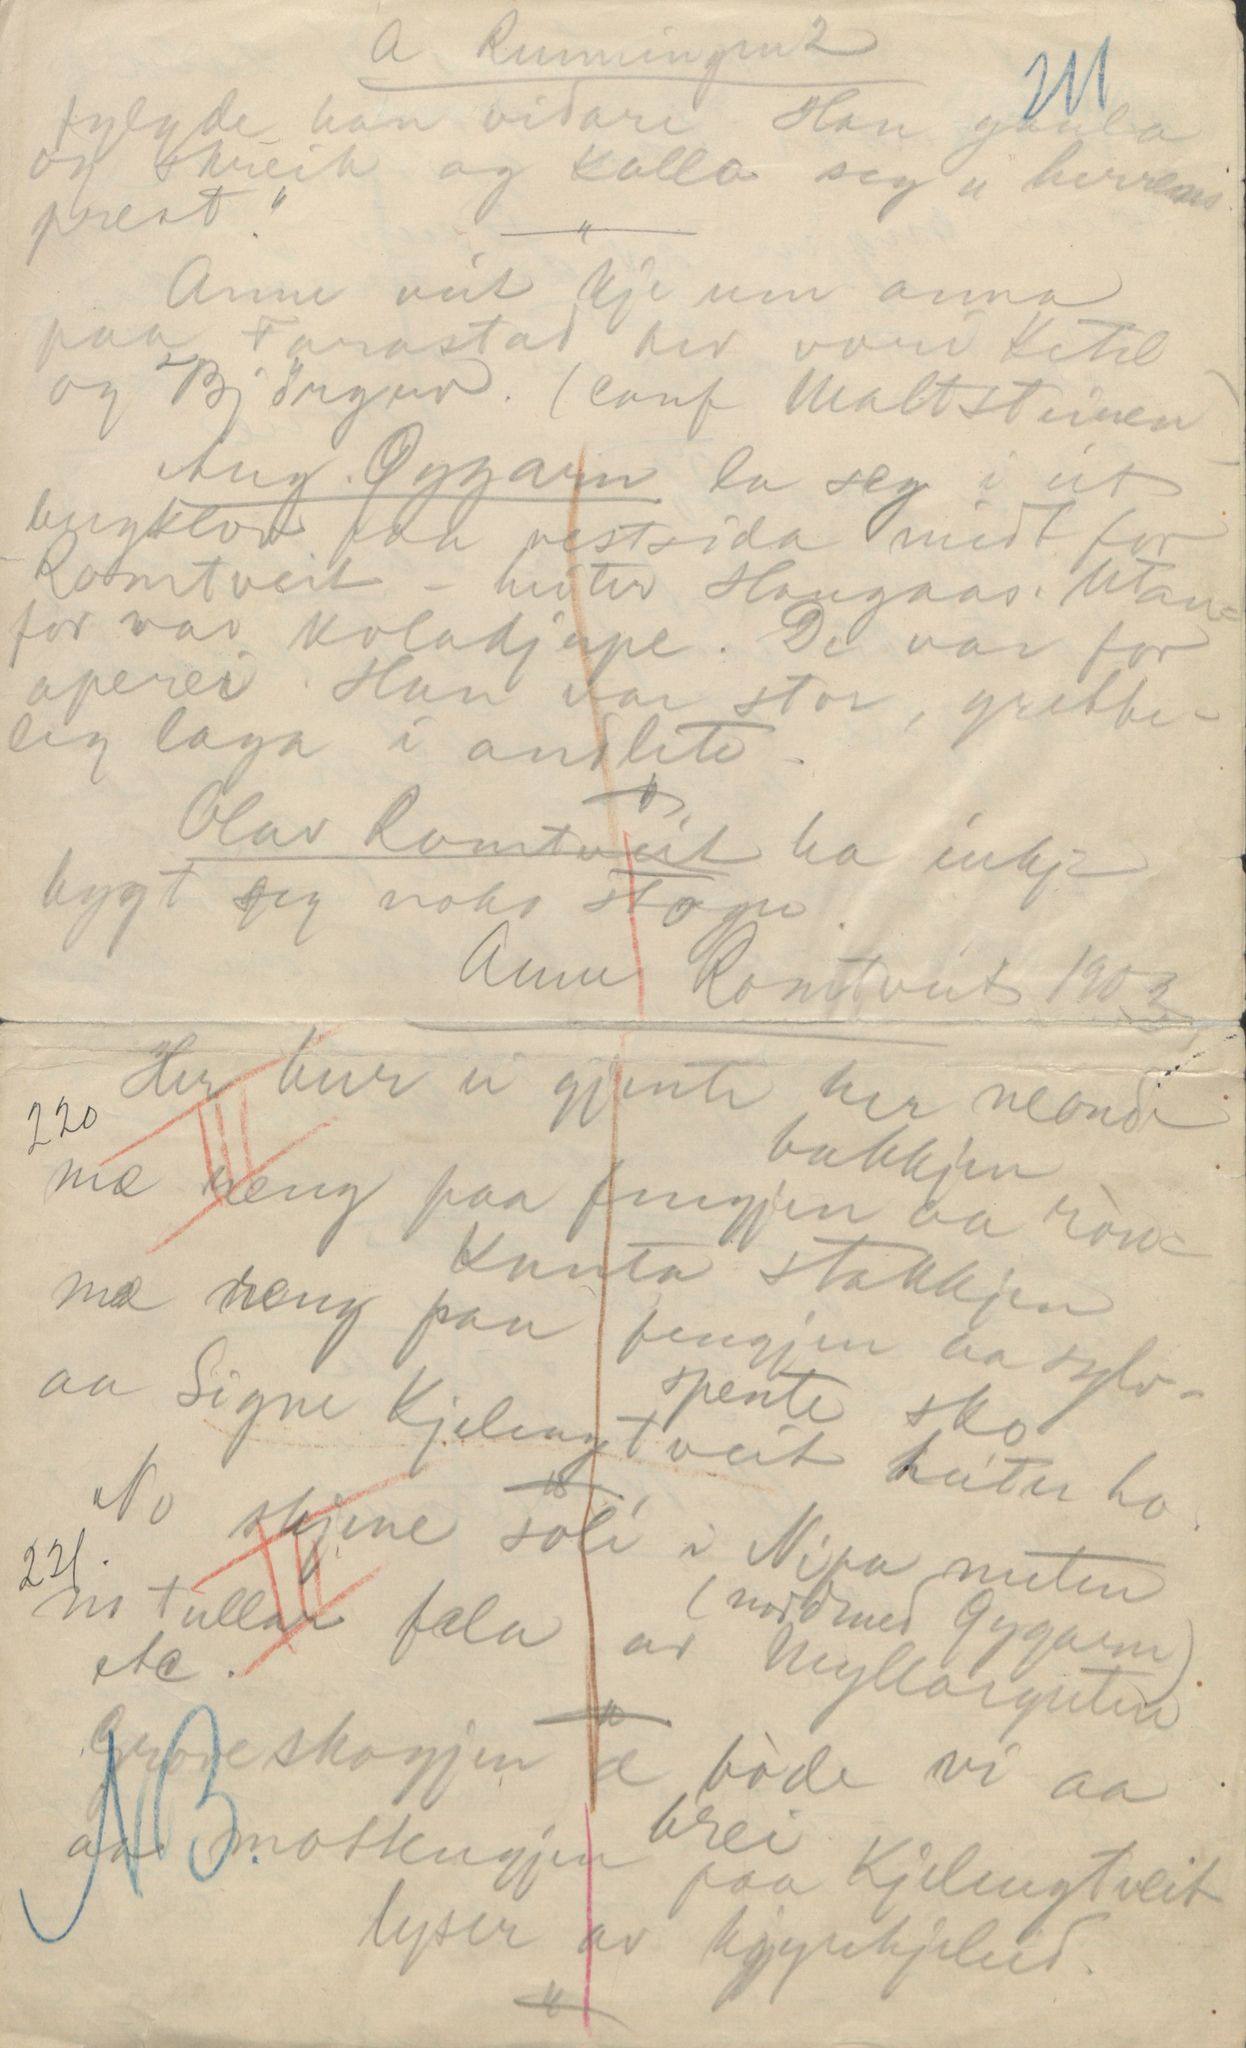 A Runningen 2
fylgde han vidare. Han gaula
og skreik og kalla seg ein herrens
prest."
Anne veit kje um anna
paa Tarastad her vori Ketil
og Björguv. (conf Maltsteinen)
Aug. Øygarn la seg i eit
bergklov paa vestsida midt for
Romtveit - heiter Haugaas. Utan=
for var koladjupe. De var for
aperei. Han var stor, grebbe-
leg laga i andlete.
Olav Romtveit ha inkje
bygt seg noko stogu.
Anne Romtveit 1903
Her bur ei gjente her neandi
220
bakkjen
mæ reng paa fingjen aa ròn=
kanta stakkjen
mæ reng paa fingjen aa sylv-
spente sko
aa Signe Kjelingtveit heiter ho.
No skjine soli i Nipa nuten
221.
(nord med Gygarn)
no tullar fela av Myllarguten
etc.
Groveskogjen æ bòde vi aa
brei
aa moskeggjen paa Kjelingtveit
lyser av kyrekjeleid.
NB.